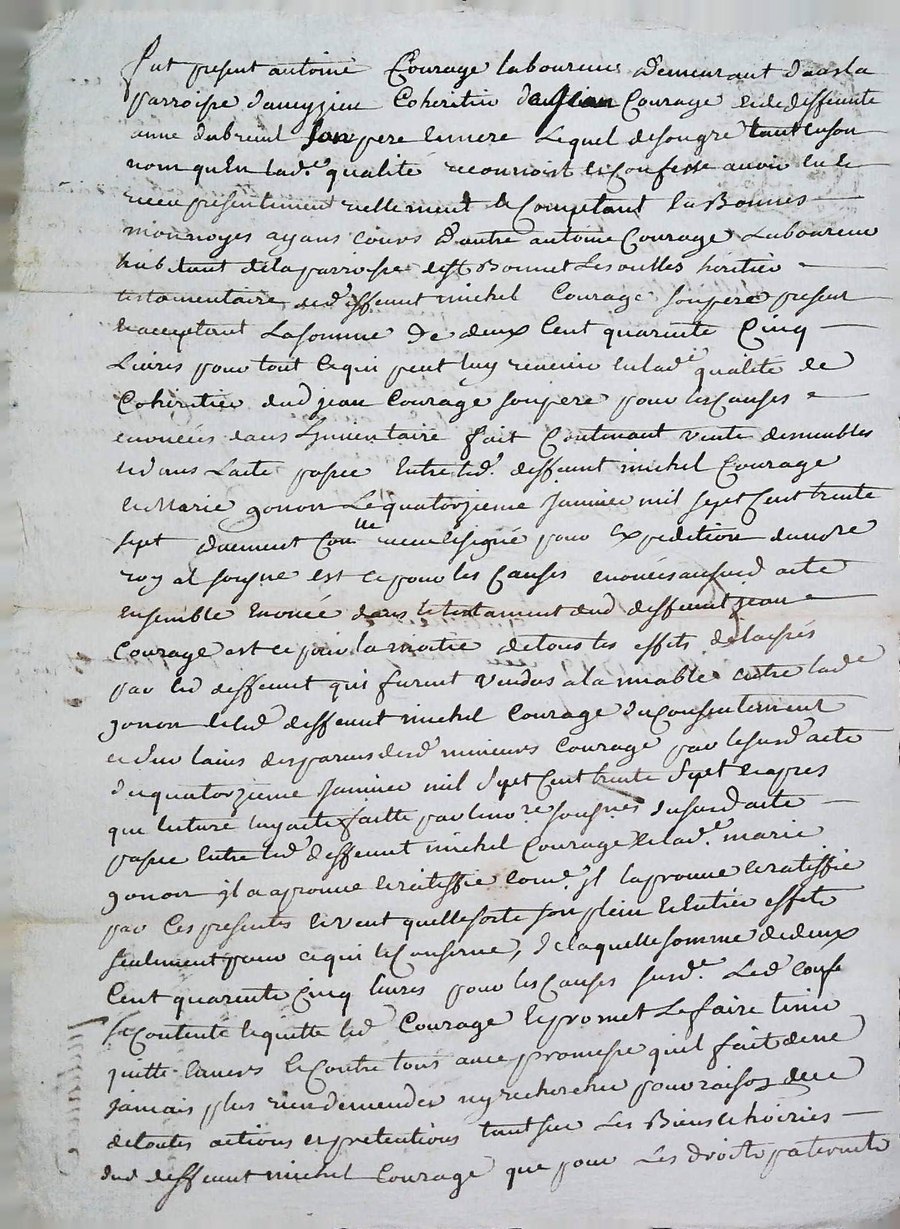 fut present antoine Courage laboureur Demeurant dans la
parroisse d'amygieu Coheritier de Jean Courage et de deffunte
anne dubreuil Son pere et mere Lequel de son gre tant en son
nom qu'en lad.e qualité reconnoist et Confesse avoir eu et
receu presentement reellement et Comptant En Bonnes
monnoyes ayans cours D'autre antoine Courage Laboureur
habitant de la parroisse de St Bonnet Les oulles heritier
testamentaire de deffunt michel Courage son pere present
et acceptant La somme De deux Cent quarente Cinq
Livres pour tout ce qui peut luy revenir en lad.e qualité de
Coheritier dud jean Courage son pere pour les Causes
enoncées dans Linventaire fait Contenant vente de meubles
et dans Lacte passé Entre led. deffunt michel Courage
et Marie gonon Le quatorzieme Janvier mil sept Cent trente
sept duement Con.lle receu et signé pour Expedition du no.re
roy al sousigne est ce pour les Causes enoncées aususd acte
ensemble Enoncé dans le testament dud deffunt jean
Courage est ce pour la moitie de tous les effets delaissés
par led deffunt qui furent vendus a lamiable entre lad.e
gonon et led deffunt michel Courage du Consentement
et des parens desd mineurs Courage par le susd acte
du quatorzieme Janvier mil Sept Cent trente Sept et apres
que lecture luy a ete faitte par le no.re sousigné du susd acte
passé Entre led deffunt michel Courage et lad.e marie
gonon jl a aprouve et ratiffie Com.e jl laprouve et ratiffie
par Ces presentes et veut quelle sorte son plein et Entier effets
seulement pour ce qui le Conserne, De laquelle somme de deux
Cent quarente Cinq livres pour les Causes susd.e Led Courage
se Contente et quitte led Courage et promet Le faire tenir
quitte Envers et Contre tous avec promesse quil fait de ne
Jamais plus rien demender ny rechercher pour raison de ce
de toutes actions et pretentions tant sur Les Biens et hoiries
dud deffunt michel Courage que pour Les droits paternels